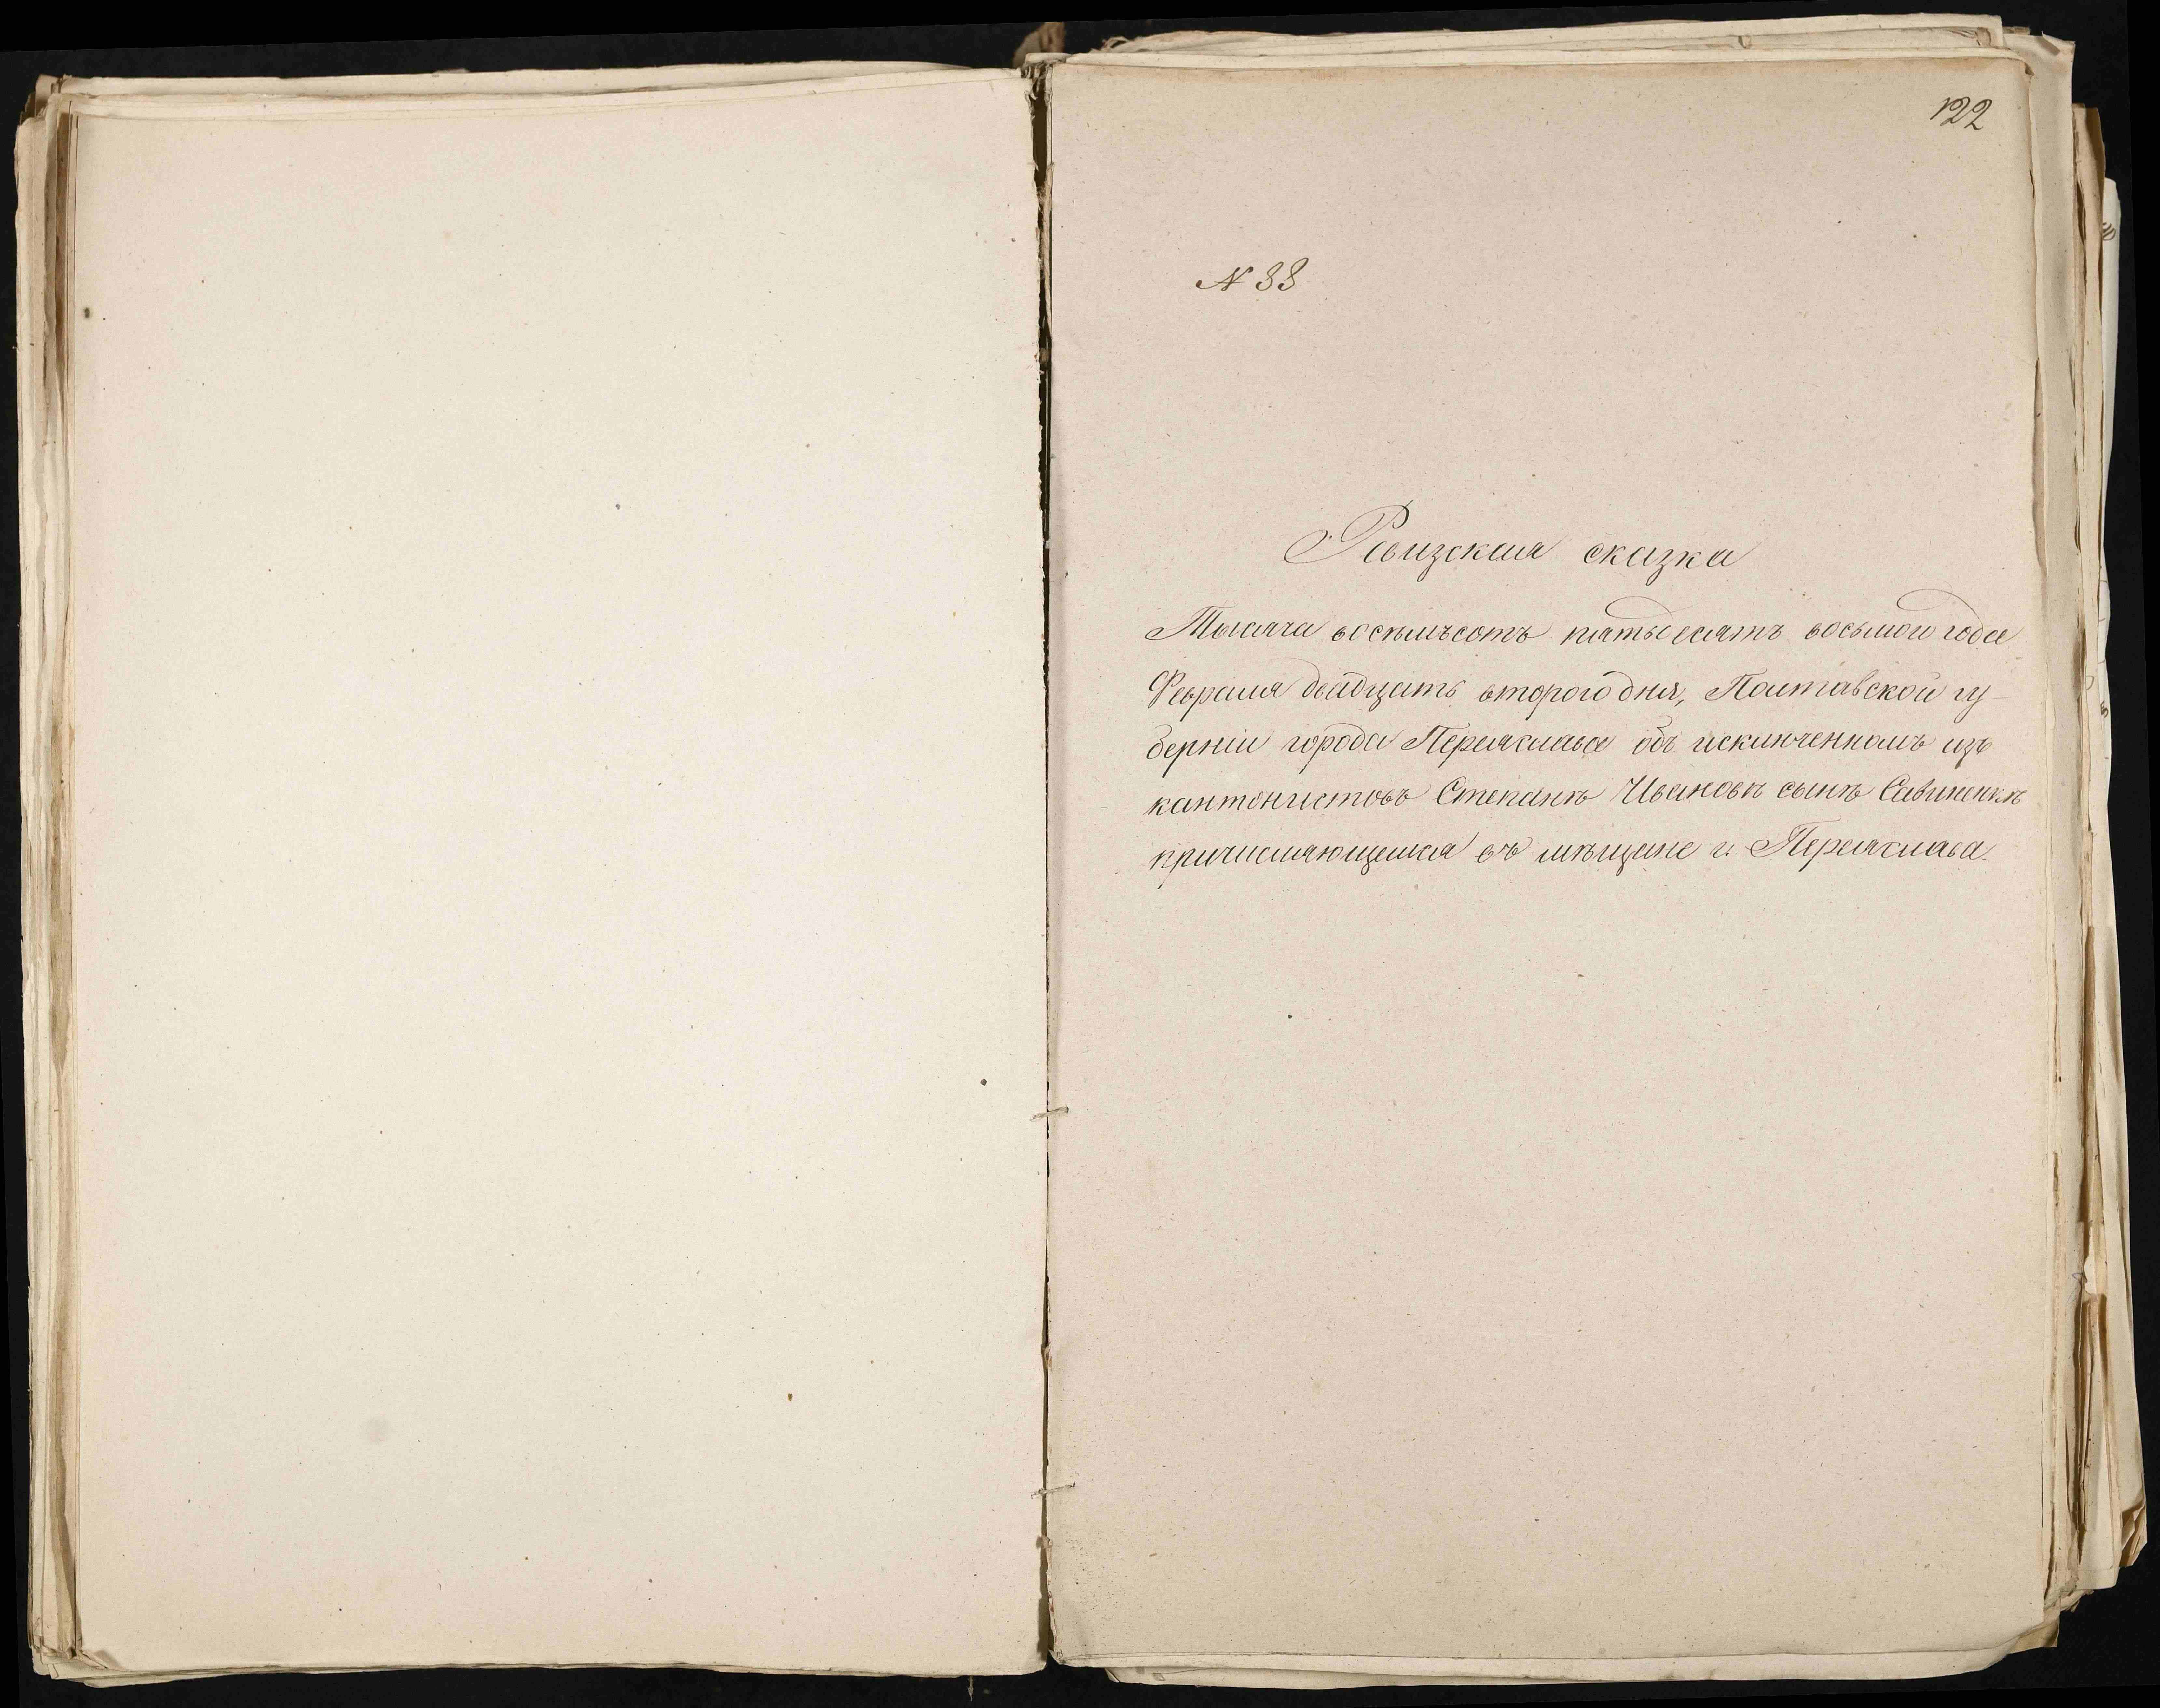 122
N 33
Ревизская сказка
Тысяча восемьсотъ пятьдесятъ восьмого года
Февраля двадцать второго дня, Полтавской гу-
берніи города Переяслава объ исключенномъ изъ
кантонистовъ Степанѣ Ивановѣ сынѣ Савиненкѣ
причисляющемся въ мѣщане г. Переяслава.